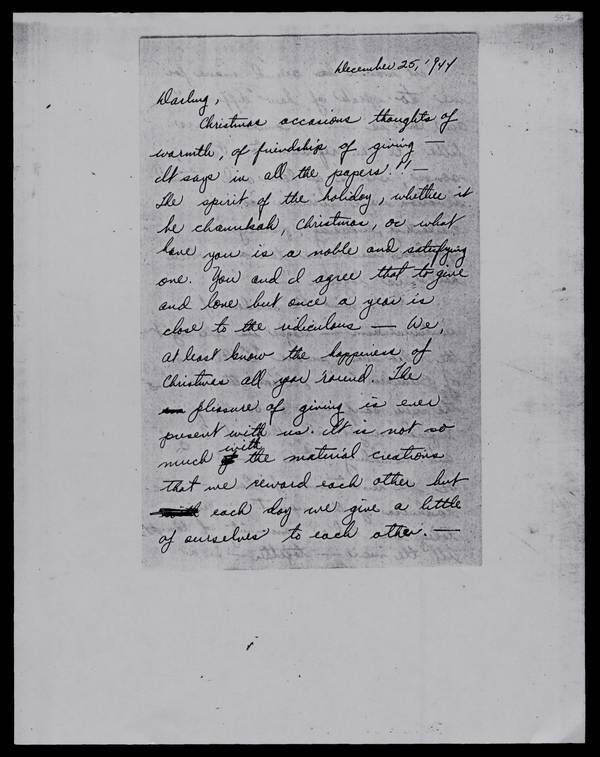 552
December 25, 1944
Darling,
Christmas occasions thoughts of
warmth, of friendship of giving —
It says in all the papers.!! —
The spirit of the holiday, whether it
be chanukah, Christmas, or what
have you is a noble and satisfying
one. You and I agree that to give
and love but once a year is
close to the ridiculous — We,
at least know the happiness of
Christmas all year 'round. The
pleasure of giving is ever
present with us. It is not so
much with the material creations
that we reward each other but
each day we give a little
of ourselves to each other. —